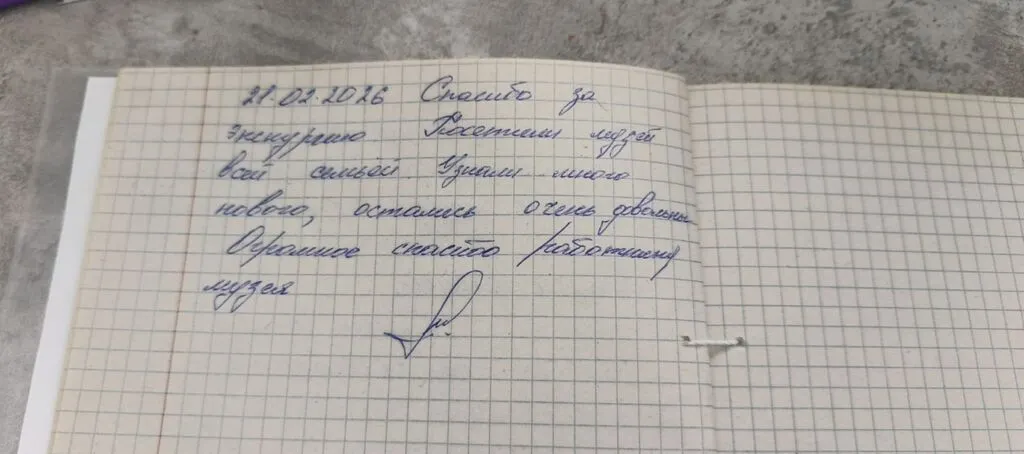 21.02.2026 Спасибо за
экскурсию Посетили музей
всей семьей. Узнали много
нового, остались очень довольны
Огромное спасибо работнику
музея